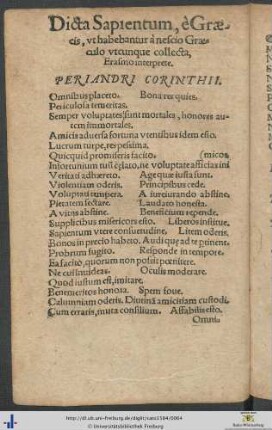 Dicta Sapientum, è Græ-
cis, vt habebantur à nescio Græ-
culo vtcunque collecta,
Erasmo interprete.
PERIANDRI CORINTHII.
Omnibus placeto. Bona res quies.
Periculosa temeritas.
Semper voluptates sunt mortales, honores au-
tem immortales.
Amicis aduersa fortuna vtentibus idem esto.
Lucrum turpe, res pessima.
Quicquid promiseris facito. (micos,
Infortunium tuũ celato, ne voluptate afficias ini
Veritati adhæreto. Age quæ iusta sunt.
Violentiam oderis. Principibus cede.
Voluptati tempera. A iureiurando abstine.
Pietatem sectare. Laudato honesta.
A vitiis abstine. Beneficium repende.
Supplicibus misericors esto. Liberos institue.
Sapientum vtere consuetudine. Litem oderis.
Bonos in precio habeto. Audi quæ ad te ptinent.
Probrum fugito. Responde in tempore.
Ea facito, quorum non possis pœnitere.
Ne cui inuideas. Oculis moderare.
Quod iustum est, imitare.
Benemeritos honora. Spem foue.
Calumniam oderis. Diutinã amicitiam custodi.
Cum erraris, muta consilium. Affabilis esto.
Omni-
http://dl.ub.uni-freiburg.de/diglit/cato1584/0064
© Universitätsbibliothek Freiburg